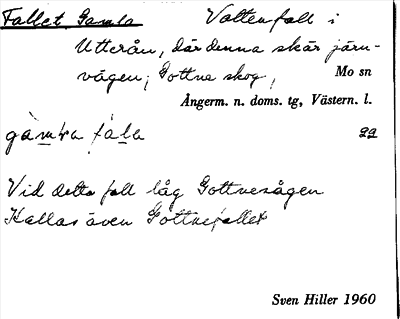 Fallet, Gamla Vattenfall i
Utterån, där denna skär järn-
vägen; Gottne skog, Mo sn
Ångerm. n. doms. tg, Västern. l.
gàmɩra fàla 22
Vid detta fall låg Gottnesågen
Kallas även Gottnefallet
Sven Hiller 1960